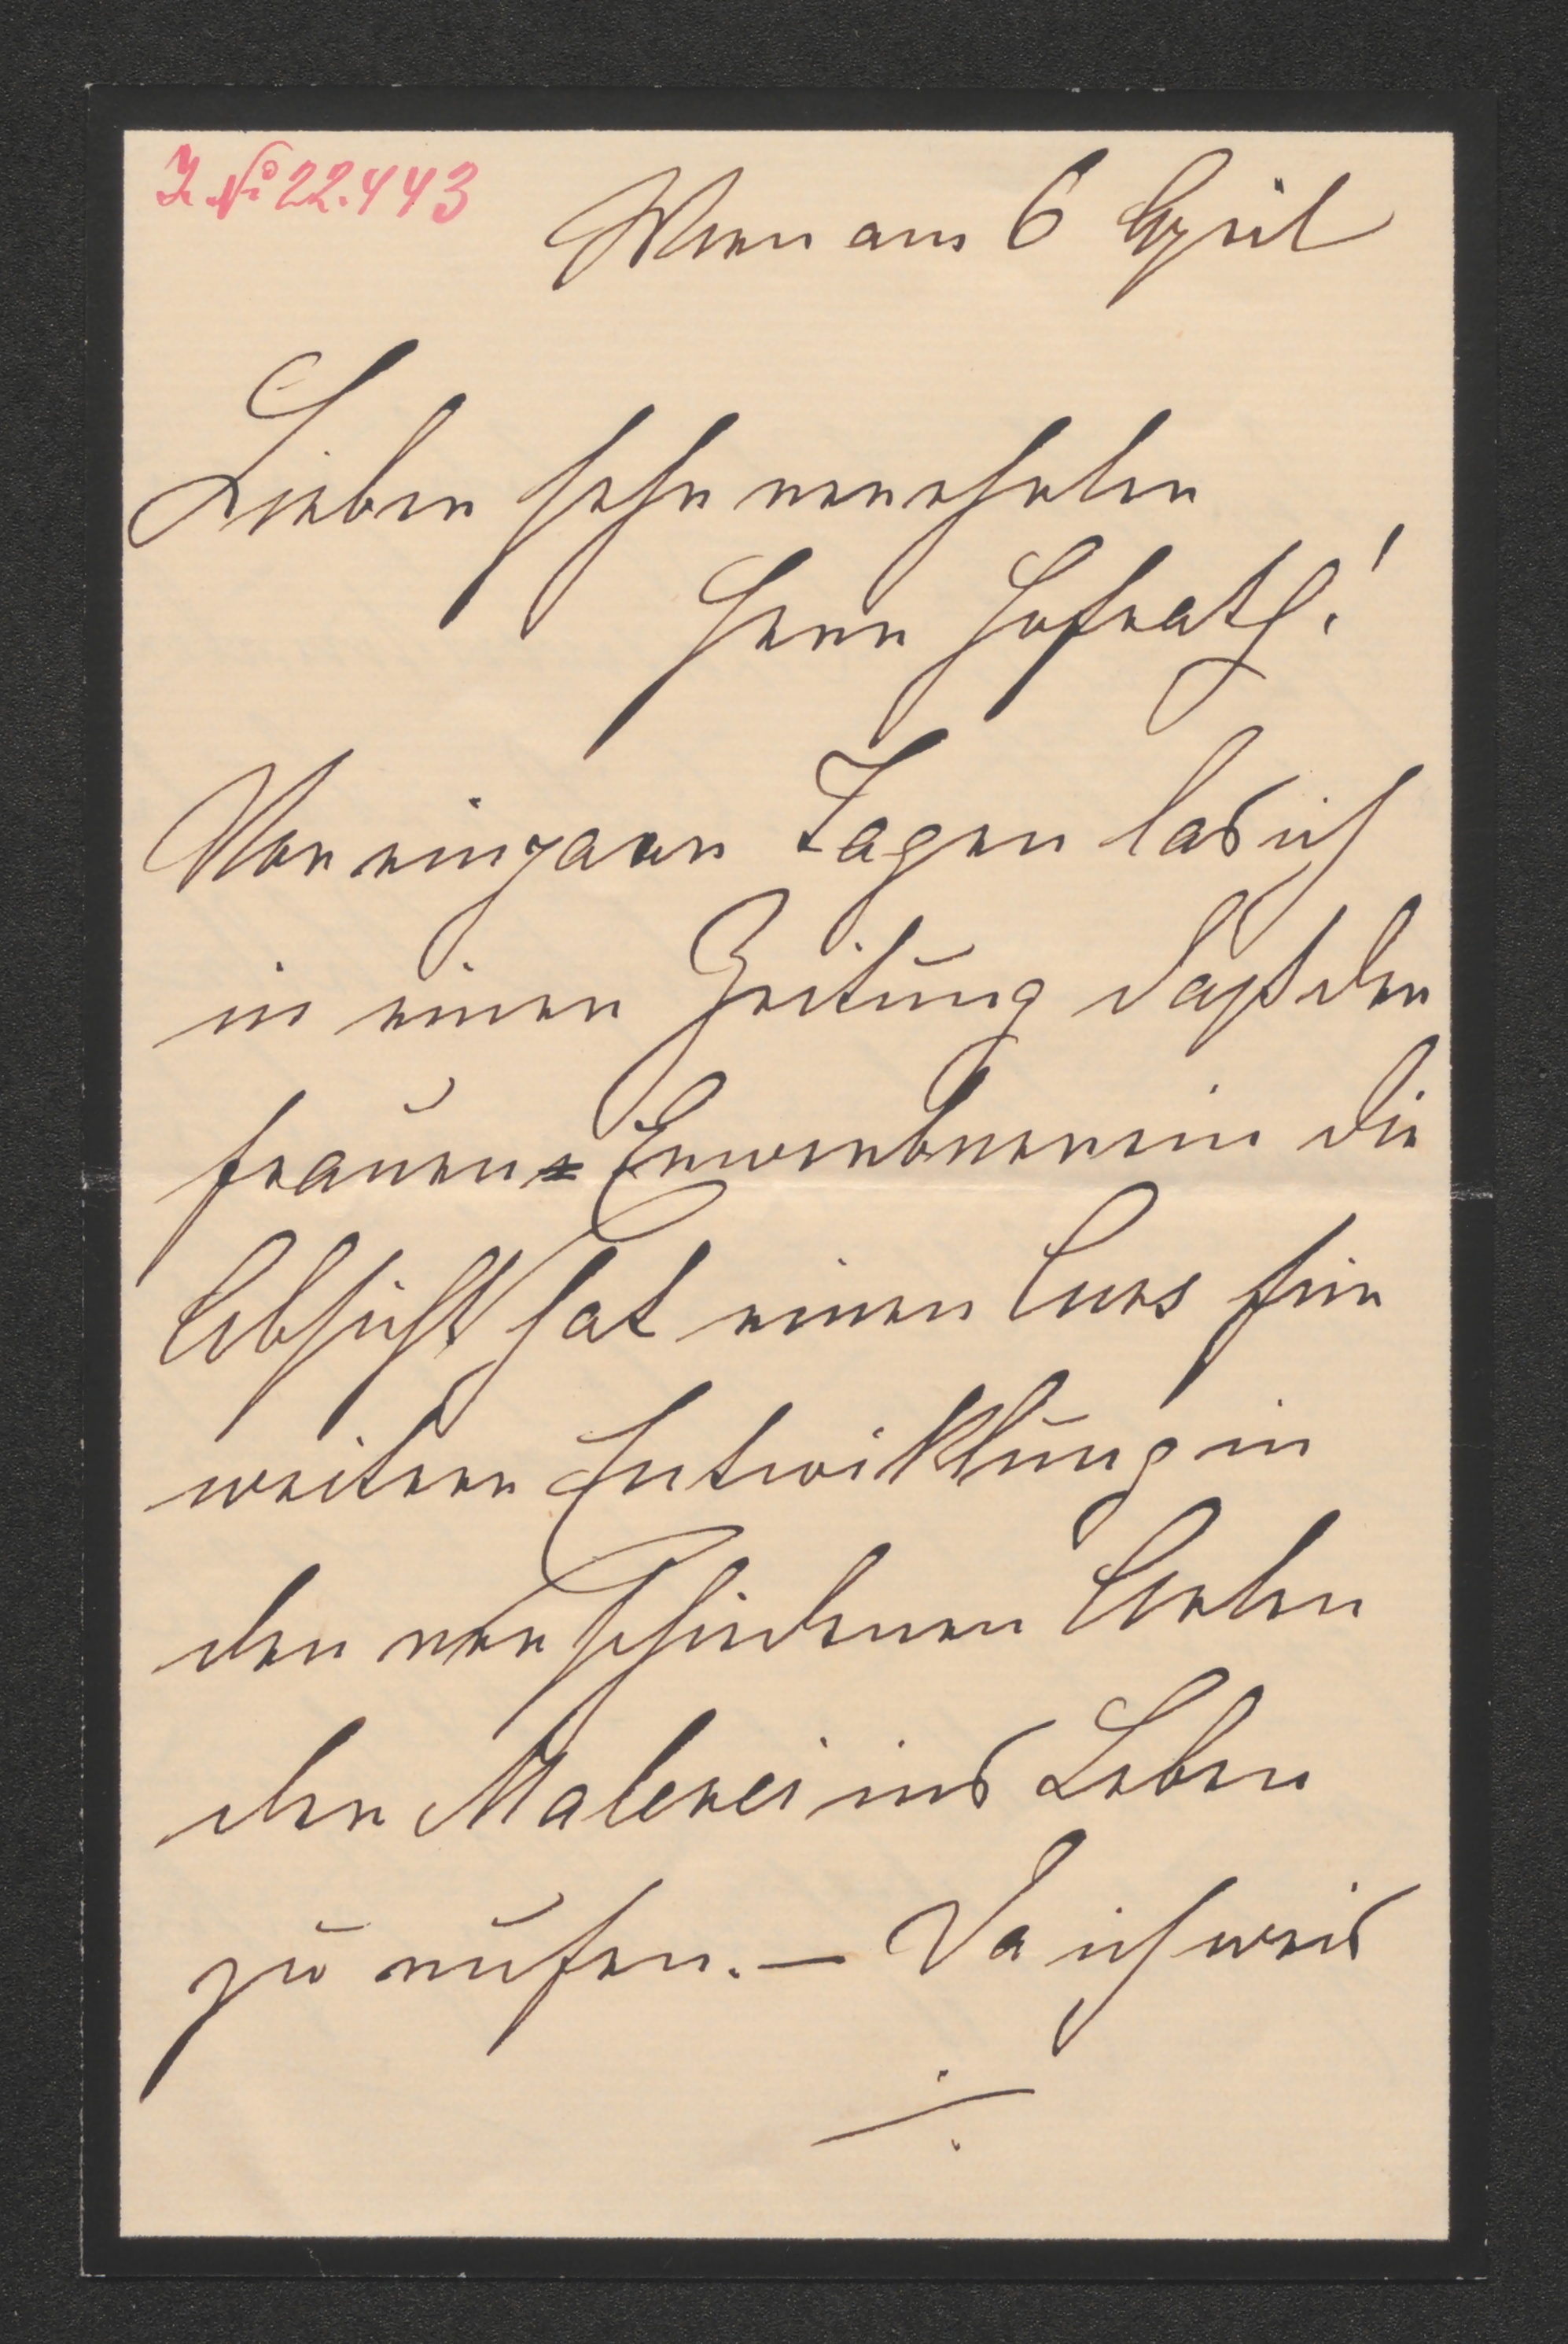 I. № 22.443
Wien am 6 April
Lieber sehr verehrter
Herr Hofrath!
Vor ein paar Tagen las ich
in einer Zeitung dass der
Frauen=Erwerbverein die
Absicht hat einen Curs für
weitere Entwicklung in
den verschiedenen Arten
der Malerei ins Leben
zu rufen. — Da ich weis
./.